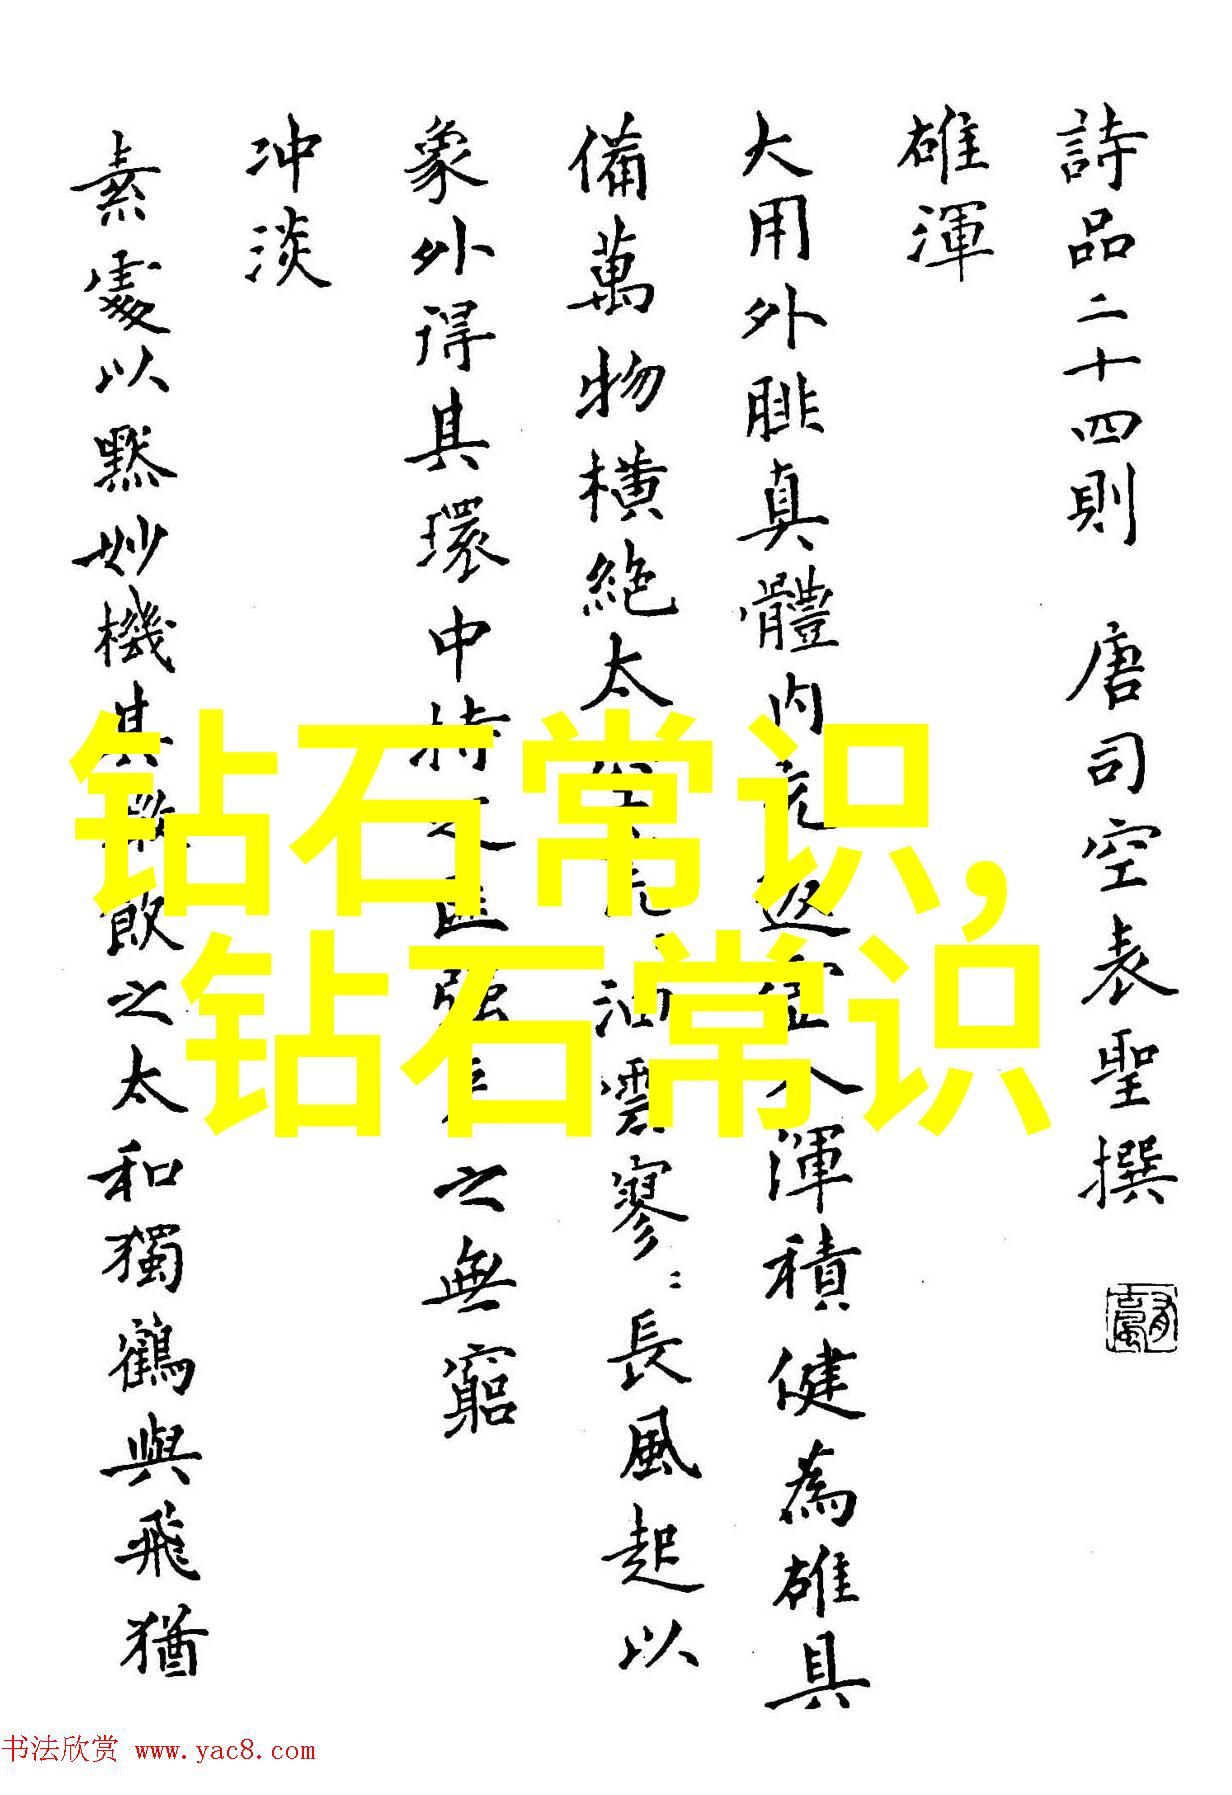 詩品二十四則 唐司空表聖撰
雄渾
大用外腓真體内充返虛入渾積健為雄具
備萬物橫絕太空荒〻油雲寥〻長風起以
象外得其環中持之匪強來之無窮
冲淡
素處以默妙機其微飲之太和獨鶴與飛猶
钻石常识,
钻石常识
书法欣赏 www.yac8.com